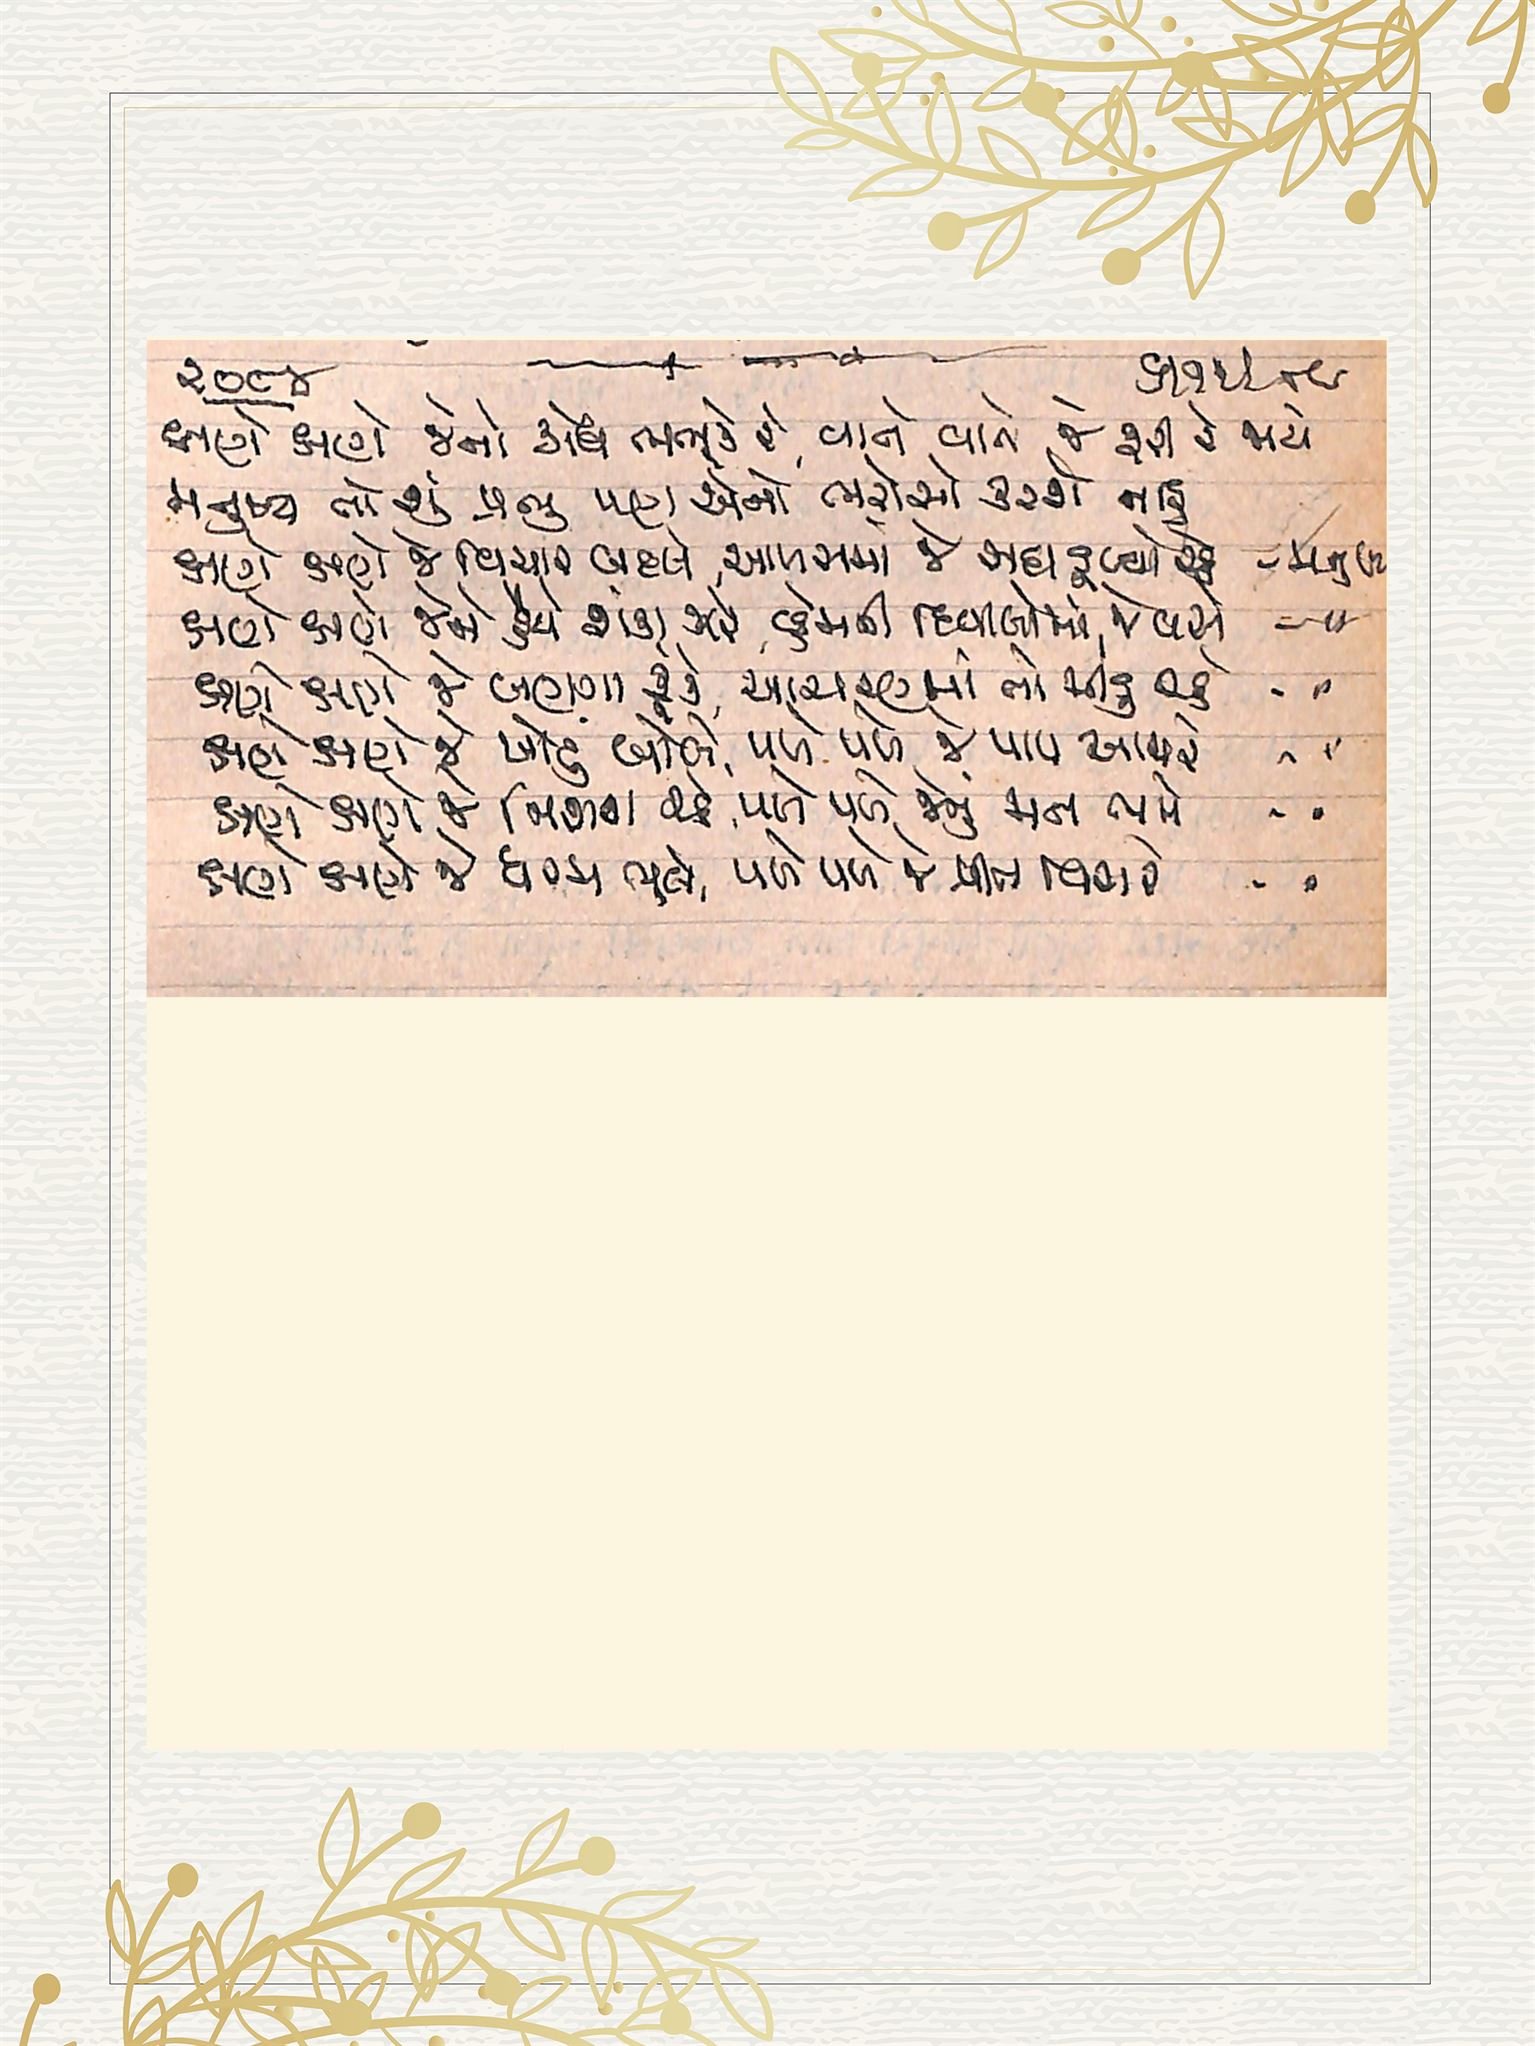 ૨૦૮૪
ક્ષણે ક્ષણે જેનો ક્રોધ ભભૂકે રે, વાતે વાતે જે ફરી રે જાયે
મનુષ્ય તો શું પ્રભુ પણ એનો ભરોસો કરશે નહિ
ક્ષણે ક્ષણે જે વિચાર બદલે, આળસમાં જે સદા ડૂબ્યો રહે - મનુષ્ય
ક્ષણે ક્ષણે જેને હૈયે શંકા જાગે, વ્હેમની દિવાલોમાં જે વસે - "
ક્ષણે ક્ષણે જે બણગા ફૂંકે, આચરણમાં તો મીંડુ રહે - "
ક્ષણે ક્ષણે જે ખોટું બોલે, પળે પળે જે પાપ આચરે - "
ક્ષણે ક્ષણે જે નિરાશ રહે, પળે પળે જેનું મન ભમે - "
ક્ષણે ક્ષણે જે ધરમ ભુલે, પળે પળે જે પ્રીત વિસરે - "